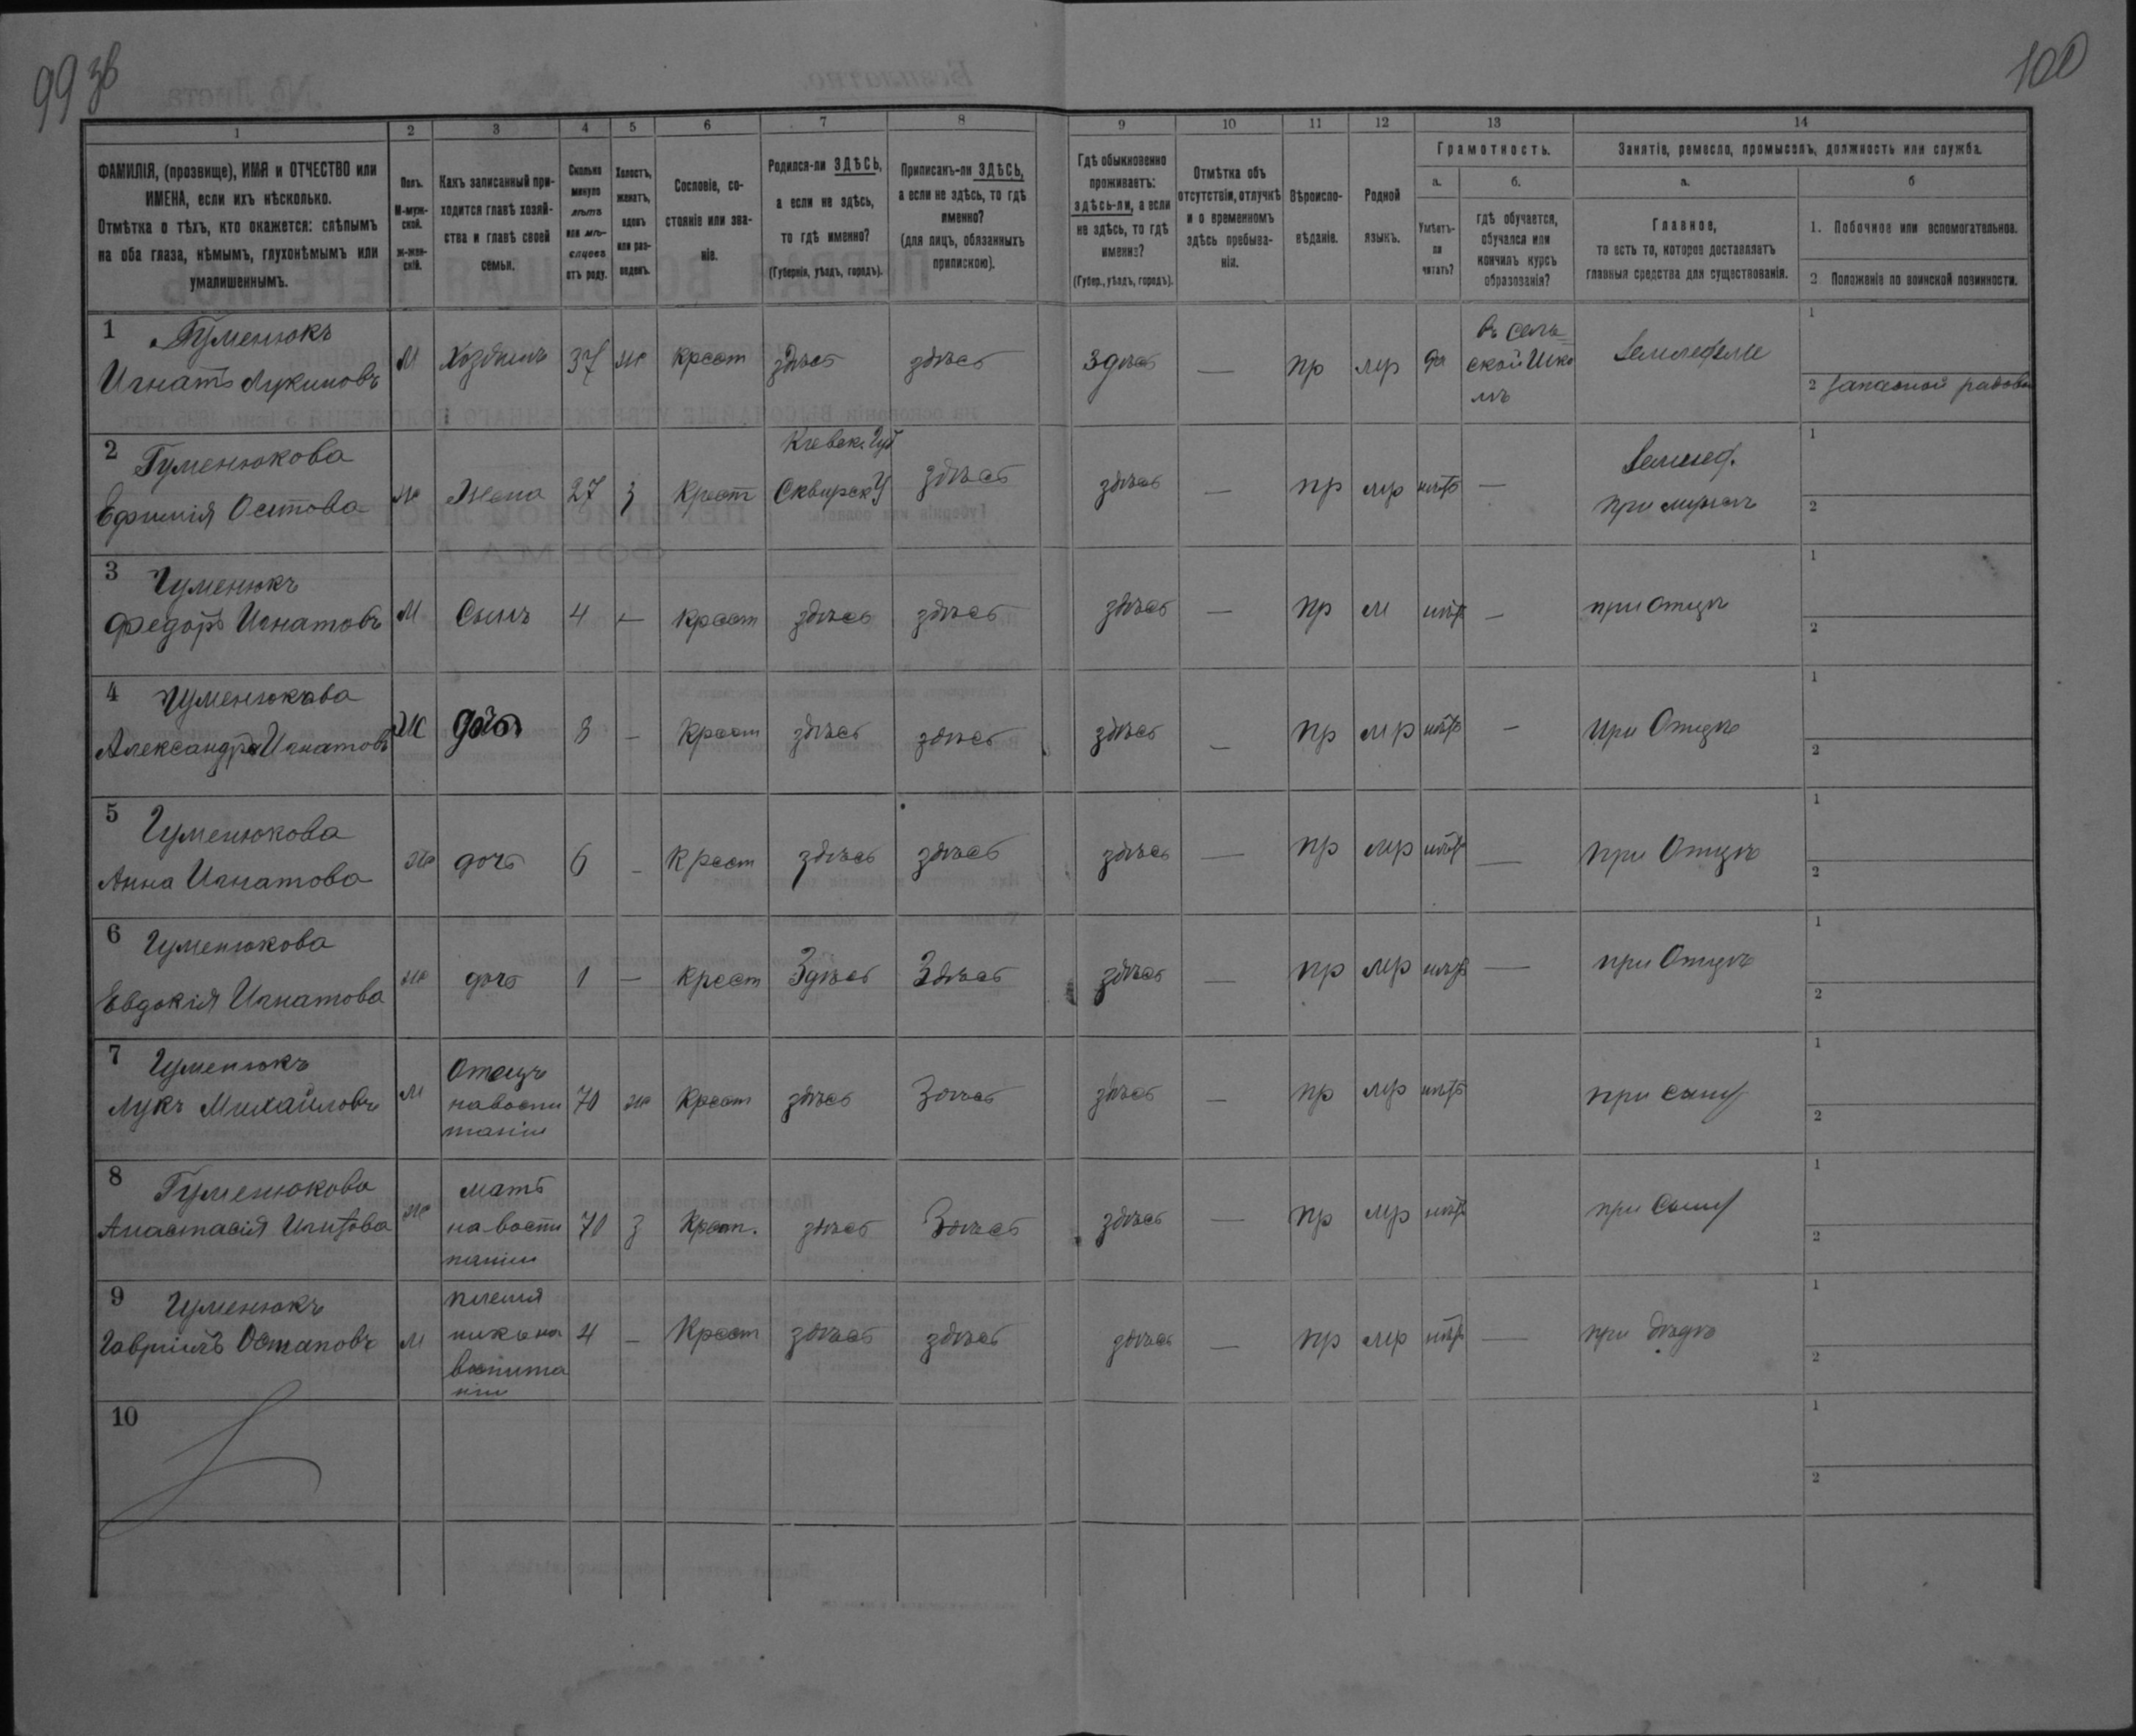 99 зв
100
1 2 3 4 5 6 7 8 9 10 11 12 13 14
ФАМИЛІЯ, (прозвище), ИМЯ и ОТЧЕСТВО или
ИМЕНА, если ихъ нѣсколько.
Отмѣтка о тѣхъ, кто окажется: слѣпымъ
на оба глаза, нѣмымъ, глухонѣмымъ или
умалишеннымъ.
Полъ.
М-муж-
ской.
ж-жен-
скій.
Какъ записанный при-
ходится главѣ хозяй-
ства и главѣ своей
семьи.
Сколько
минуло
лѣтъ
или мѣ-
сяцевъ
отъ роду.
Холостъ,
женатъ,
вдовъ
или раз-
веденъ.
Сословіе, со-
стояніе или зва-
ніе.
Родился-ли ЗДѢСЬ,
а если не здѣсь,
то гдѣ именно?
(Губернія, уѣздъ, городъ).
Приписанъ-ли ЗДѢСЬ,
а если не здѣсь, то гдѣ
именно?
(для лицъ, обязанныхъ
припискою).
Гдѣ обыкновенно
проживаетъ:
здѣсь-ли, а если
не здѣсь, то гдѣ
именно?
(Губер., уѣздъ, городъ).
Отмѣтка объ
отсутствіи, отлучкѣ
и о временномъ
здѣсь пребыва-
ніи.
Вѣроиспо-
вѣданіе.
Родной
языкъ.
Грамотность.
а.
Умѣетъ-
ли
читать?
б.
гдѣ обучается,
обучался или
кончилъ курсъ
образованія?
Занятіе, ремесло, промыселъ, должность или служба.
а.
Главное,
то есть то, которое доставляетъ
главныя средства для существованія.
б
1. Побочное или вспомогательное.
2 Положеніе по воинской повинности.
1 Гуменюкъ
Игнатъ Лукиновъ
М Хозяинъ 37 ж крест здѣсь здѣсь здѣсь — пр мр да
въ сель=
ской Шко
лѣ
Земледѣліе
1
2 Запасной рядовой
2 Гуменюкова
Ефимія Осипова
ж Жена 27 з Крест
Кіевск. Губ
Сквирск У
здѣсь здѣсь — пр мр нѣтъ —
Землед.
При мужѣ
1
2
3 Гуменюкъ
Федоръ Игнатовъ
М Сынъ 4 — крест здѣсь здѣсь здѣсь — пр м нѣтъ — при отцѣ
1
2
4 Гуменюкова
Александра Игнатов
Ж дочь 8 — Крест здѣсь здѣсь здѣсь — пр мр нѣтъ — при Отцѣ
1
2
5 Гуменюкова
Анна Игнатова
ж дочь 6 — Крест здѣсь здѣсь здѣсь — пр мр нѣтъ — при Отцѣ
1
2
6 Гуменюкова
Евдокія Игнатова
ж дочь 1 — крест Здѣсь Здѣсь здѣсь — пр мр нѣтъ — при Отцѣ
1
2
7 Гуменюкъ
Лукъ Михайловъ
М
Отецъ
на воспи
таніи
70 ж Крест здѣсь Здѣсь здѣсь — пр мр нѣтъ при сыну
1
2
8 Гуменюкова
Анастасія
ж
мать
на воспи
таніи
70 з Крест. здѣсь Здѣсь здѣсь — пр мр нѣтъ при сыну
1
2
9 Гуменюкъ
Гавріилъ Остаповъ
М
племя
никъ на
воспита
ніи
4 — Крест здѣсь здѣсь здѣсь — пр мр нѣтъ — при дѣдѣ
1
2
10
1
2